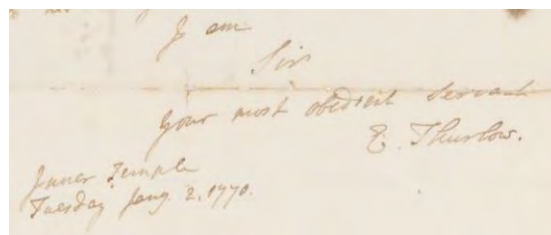 I am
Sir
Your most obedient Servant
E. Thurlow.
Inner Temple
Tuesday Jany. 2. 1770.